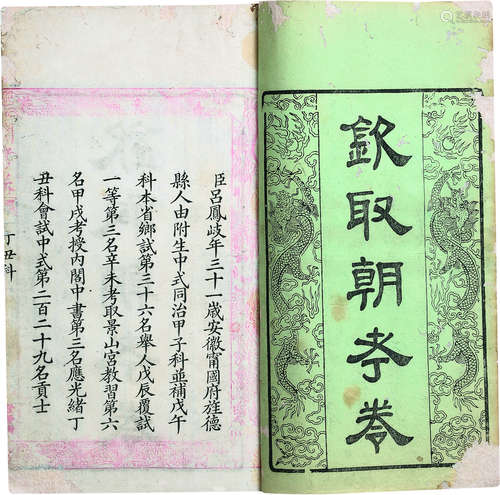 欽取朝考卷
臣呂鳳岐年三十一歲安徽甯國府旌德
縣人由附生中式同治甲子科並補戊午
科本省鄉試第三十六名舉人戊辰覆試
一等第三名辛未考取景山宮教習第六
名甲戌考授內閣中書第三名應光緒丁
丑科會試中式第二百二十九名貢士
丁丑科